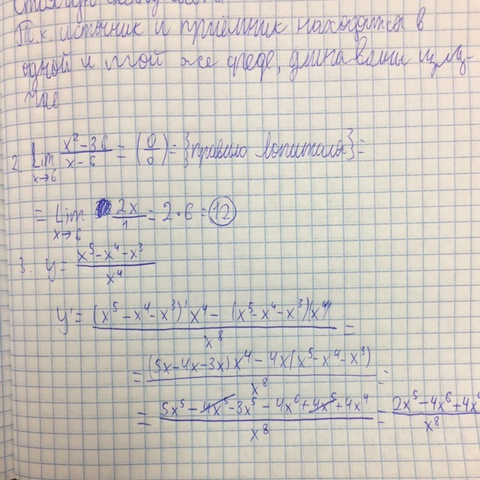 Т.к источник и приёмник находятся в
одной и той же среде, длина волны
2. Lim x→6 (x² - 36)/(x - 6) = (0/0) = {правило Лопиталя} =
= Lim x→6 2x/1 = 2·6 = 12
3. y = (x⁵ - x⁴ - x³)/x⁴
y' = ((x⁵ - x⁴ - x³)' x⁴ - (x⁵ - x⁴ - x³)(x⁴)')/x⁸ =
= ((5x - 4x - 3x) x⁴ - 4x (x⁵ - x⁴ - x³))/x⁸ =
= (5x⁵ - 4x⁵ - 3x⁵ - 4x⁶ + 4x⁵ + 4x⁴)/x⁸ = (2x⁵ - 4x⁶ + 4x⁴)/x⁸